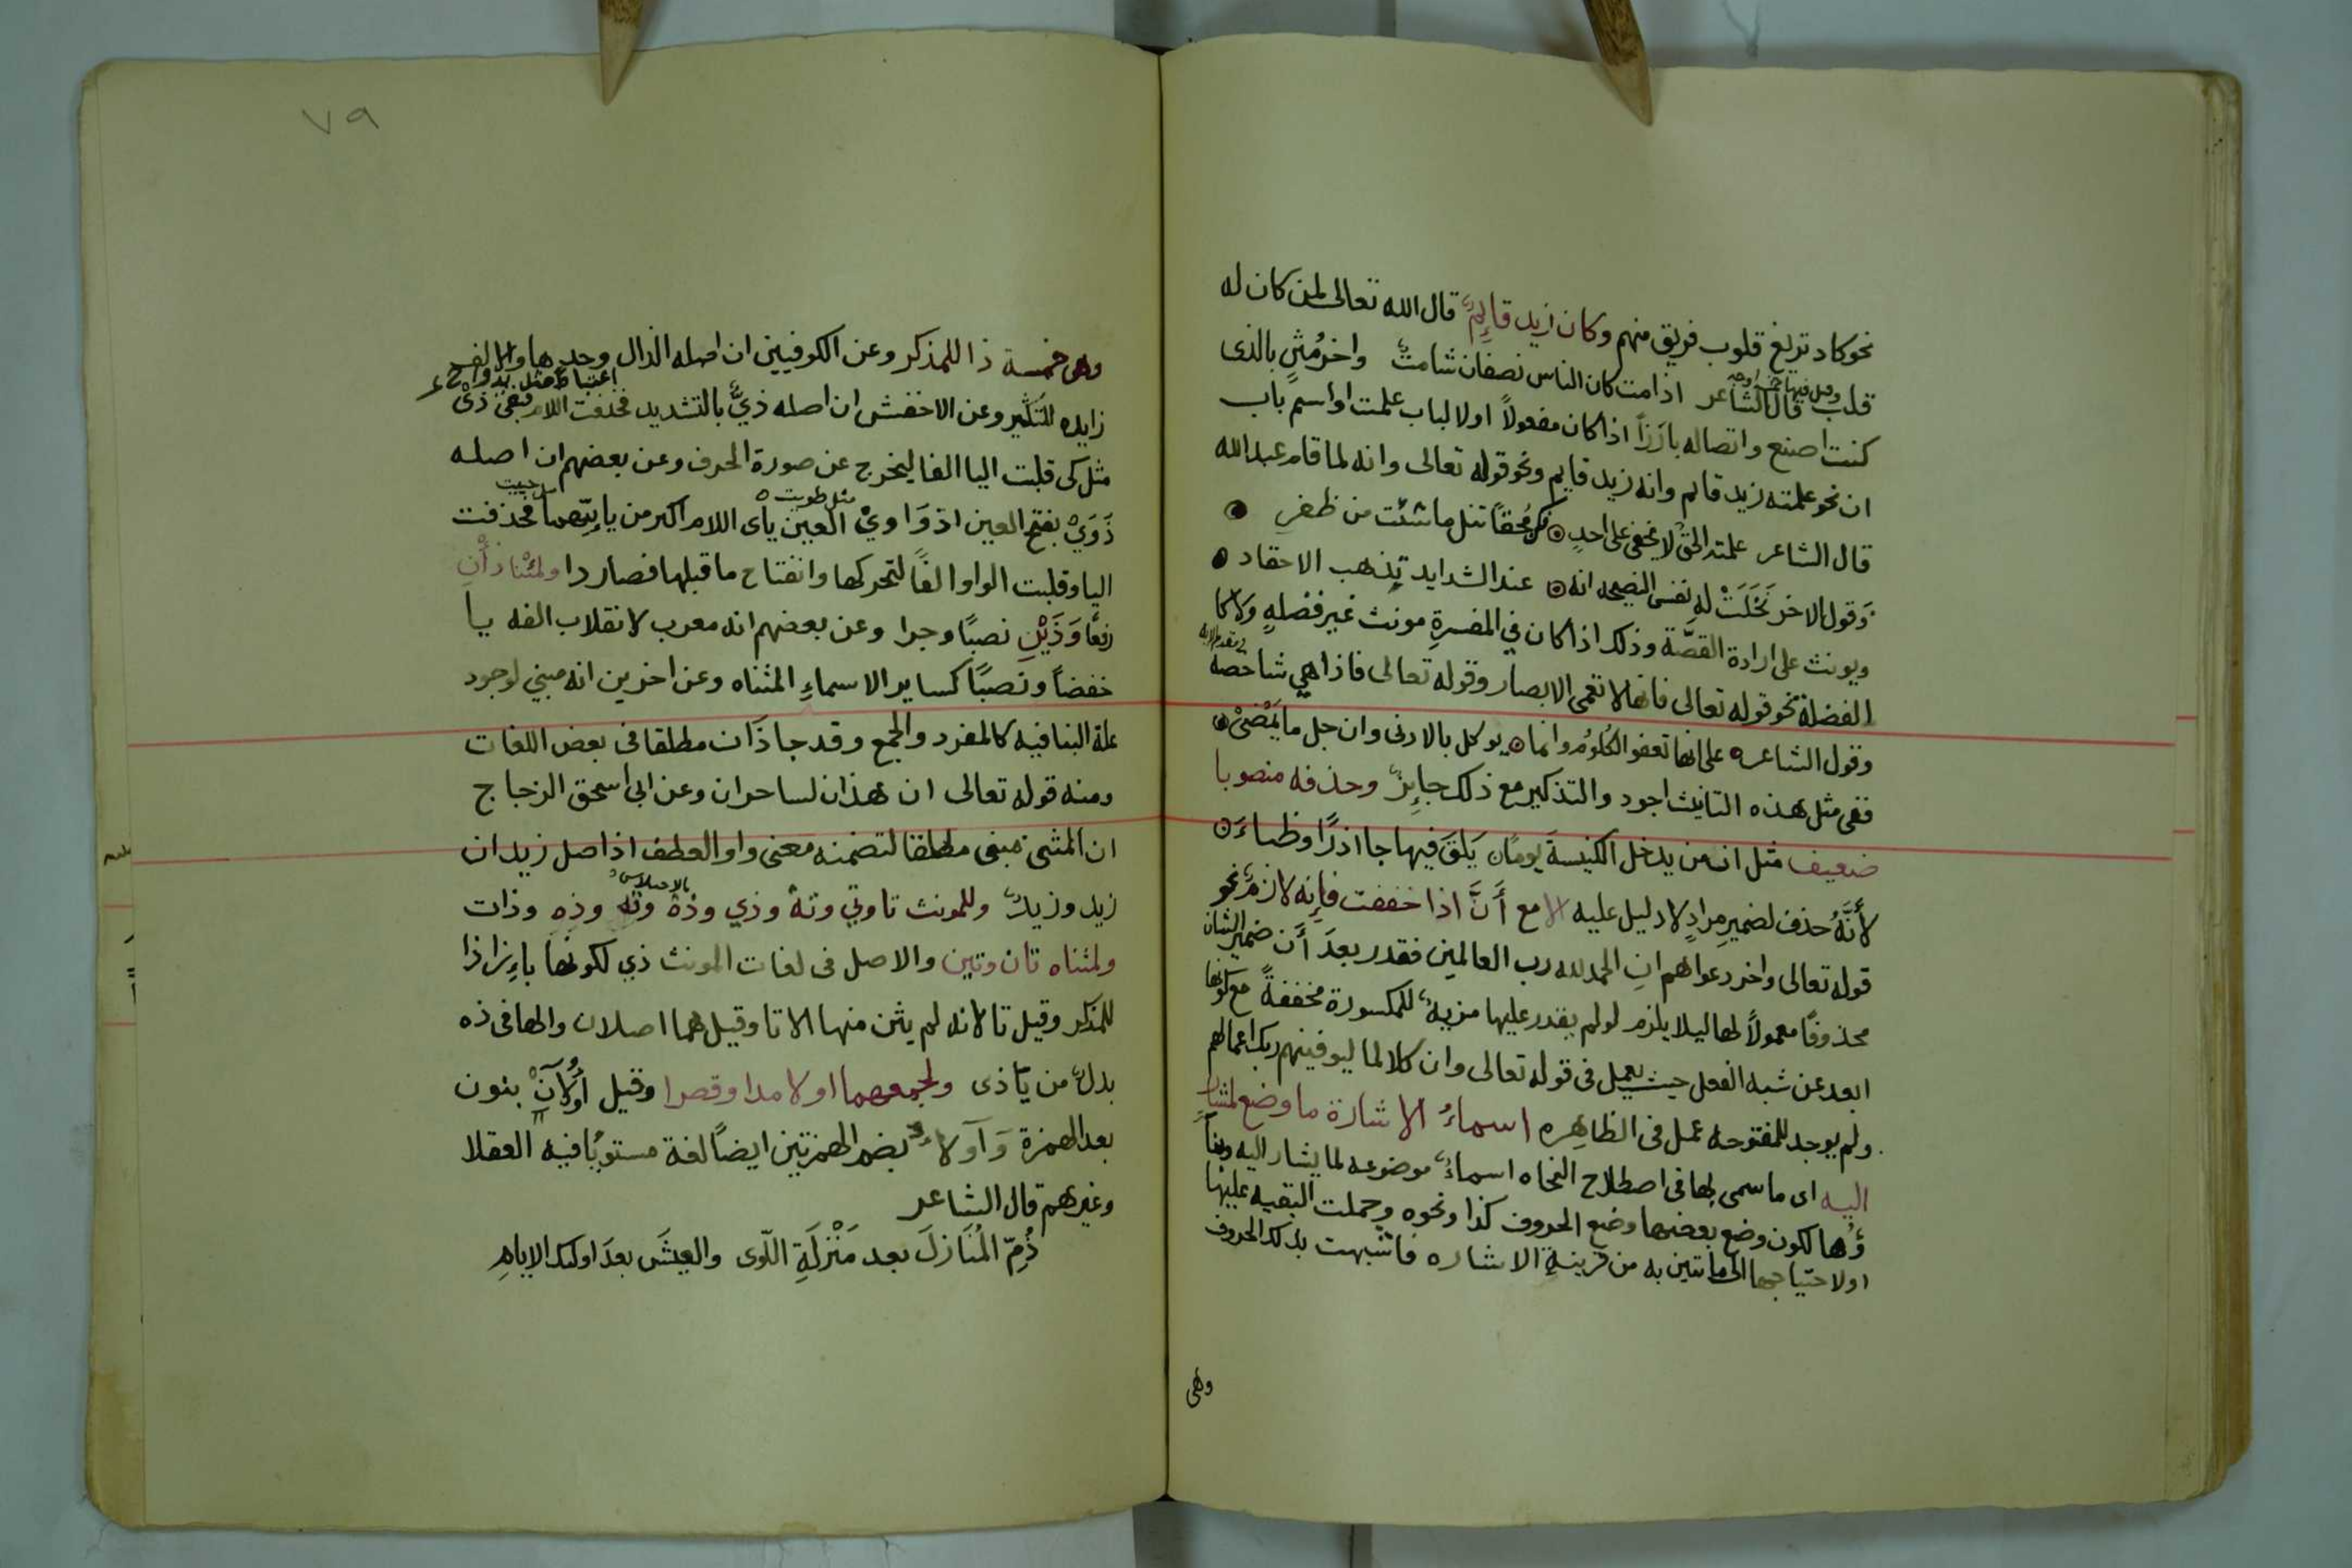 نحو كاد تزيغ قلوب فريق منهم وكان زيد قايمٌ قال الله تعالى لمن كان له
قلب وقيل فيها قال الشاعر اذا مت كان الناس نصفان شامتٌ واخر مُثنٍ بالذى
كنت اصنع واتصاله بارَزاً اذا كان مفعولاً اولا لباب علمت او اسم باب
ان نحو علمته زيد قايم وانه زيد قايم ونحو قوله تعالى وانه لما قام عبد الله
قال الشاعر علمته الحق لا يخفى على احدٍ فكن مُحقاً تنل ما شئت من ظفرِ
وقول الاخر نَخَلَتْ له نفسى النصيحه انه عند الشدايد تذهب الاحقاد
ويونث على ارادة القصَّة وذلك اذا كان في المفسرةِ مونث غير فضلهٍ ولا كا
الفضلة نحو قوله تعالى فانها لا تعمى الابصار وقوله تعالى فاذا هي شاخصة
وقول الشاعر على انها تعفو الكلُومُ وانما يوكل بالادنى وان جل ما يَمْضىْ
ففى مثل هذه التانيث اجود والتذكير مع ذلك جايزٌ وحذفه منصوبا
ضعيف مثل ان من يدخل الكنيسةَ يومًا يَلقَ فيها جااذرًا وظباءَ
لأنَّهُ حذف لضميرِ مرادٍ لا دليل عليه الا مع أَنَّ اذا خففت فإنه لازمٌ نحو
قوله تعالى واخر دعواهم انِ الحمد لله رب العالمين فقدر بعدَ أَن ضمير الشان
محذوفًا معمولاً لها ليلا يلزم لو لم يقدر عليها مزيةٌ للمكسورة مخففةً مع كونها
ابعد عن شبه الفعل حيث يعمل فى قوله تعالى وان كلا لما ليوفينهم ربك اعمالهم
ولم يوجد للمفتوحه عمل فى الظاهِره اسماءُ الاشارة ما وضع لمشارٍ
اليه اى ما سمى بها فى اصطلاح النحاه اسماءٌ موضوعه لما يشار اليه وبنا
ؤُها لكون وضع بعضها وضع الحروف كذا ونحوه وحملت البقيه عليها
او لاحتياجها الى ما تبين به من قرينةِ الاشاره فاشبهت بذلك الحروف
وهى
٧٩
وهى خمسة ذا للمذكر وعن الكوفيين ان اصله الذال وحدها والالف
زايده للتكثير وعن الاخفش ان اصله ذيٌّ بالتشديد فحذفت اللام اعتباطا مثل يد فبقى ذىْ
مثل كى قلبت اليا الفا ليخرج عن صورة الحرف وعن بعضهم ان اصله
ذَوَيْ بفتح العين اذ وَاويْ العين ياى اللام مثل طويت اكثر من يايتّهما حييت فحذفت
اليا وقلبت الواو الفاً لتحركها وانفتاح ما قبلها فصار ذا ولمثناه ذَأنِ
رفعًا وَذَيْنِ نصبًا وجرا وعن بعضهم انه معرب لانقلاب الفه يا
خفضاً ونصبًا كساير الاسماءِ المثناه وعن اخرين انه مبني لوجود
علة البنا فيه كالمفرد والجمع وقد جا ذَان مطلقا فى بعض اللغات
ومنه قوله تعالى ان هذان لساحران وعن ابى اسحق الزجاج
ان المثنى مبنى مطلقا لتضمنه معنى واو العطف اذ اصل زيدان
زيد وزيدٌ وللمونث تا وتي وتهْ وذي وذهْ وتهِ بالاختلاس وذهِ وذات
ولمثناه تان وتين والاصل فى لغات المونث ذي لكونها بإزا ذا
للمذكر وقيل تا لانه لم يثن منها الا تا وقيل هما اصلان والها فى ذه
بدلٌ من يا ذى ولجمعهما اولا مدا وقصرا وقيل أُولآنْ بنون
بعد الهمزة وَأولاءُ بضم الهمزتين ايضًا لغة مستوٍيًا فيه العقلا
وغيرهم قال الشاعر
ذُمِّ المُنَازلَ بعد مَنْزلَةِ اللّوى والعيشَ بعدَ اولئك الايامِ